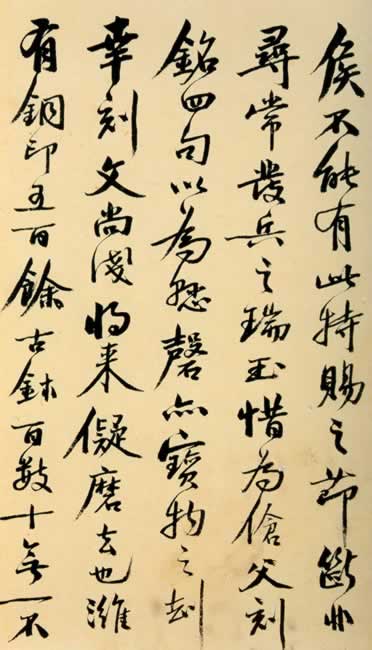 侯不能有此特賜之節斷非
尋常發兵之瑞玉惜為傖父刻
銘四句以為磬亦寶物之刦
幸刻文尚淺将来儗磨去也濰
有銅印五百餘古鉨百數十無一不